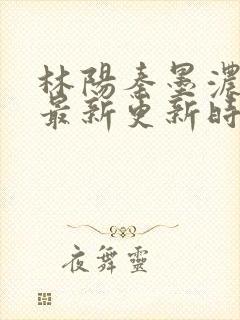 林陽秦墨濃
最新更新時
夜舞靈